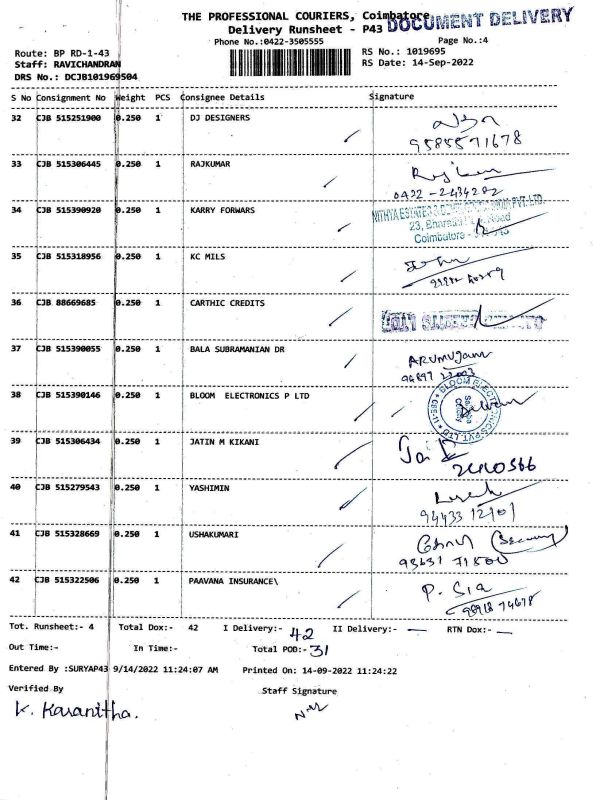 THE PROFESSIONAL COURIERS, Coimbatore
DOCUMENT DELIVERY
Delivery Runsheet - P43
Phone No.:0422-3505555 Page No.:4
Route: BP RD-1-43 RS No.: 1019695
Staff: RAVICHANDRAN RS Date: 14-Sep-2022
DRS No.: DCJB101969504
S No Consignment No Weight PCS Consignee Details Signature
32 CJB 515251900 0.250 1 DJ DESIGNERS
9585571678
33 CJB 515306445 0.250 1 RAJKUMAR
0422 - 2434202
34 CJB 515390920 0.250 1 KARRY FORWARS
NITHYA ESTATES & PVT. LTD.
23, Road
Coimbatore -
35 CJB 515318956 0.250 1 KC MILS
36 CJB 88669685 0.250 1 CARTHIC CREDITS
37 CJB 515390055 0.250 1 BALA SUBRAMANIAN DR
ARUMUGAM
38 CJB 515390146 0.250 1 BLOOM ELECTRONICS P LTD
BLOOM ELECTRONICS PVT. LTD
39 CJB 515306434 0.250 1 JATIN M KIKANI
40 CJB 515279543 0.250 1 YASHIMIN
94433 12101
41 CJB 515328669 0.250 1 USHAKUMARI
42 CJB 515322506 0.250 1 PAAVANA INSURANCE\
P. Sia
98918 74678
Tot. Runsheet:- 4 Total Dox:- 42 I Delivery:- 42 II Delivery:- — RTN Dox:- —
Out Time:- In Time:- Total POD:- 31
Entered By :SURYAP43 9/14/2022 11:24:07 AM Printed On: 14-09-2022 11:24:22
Verified By Staff Signature
K. Kavanitha.